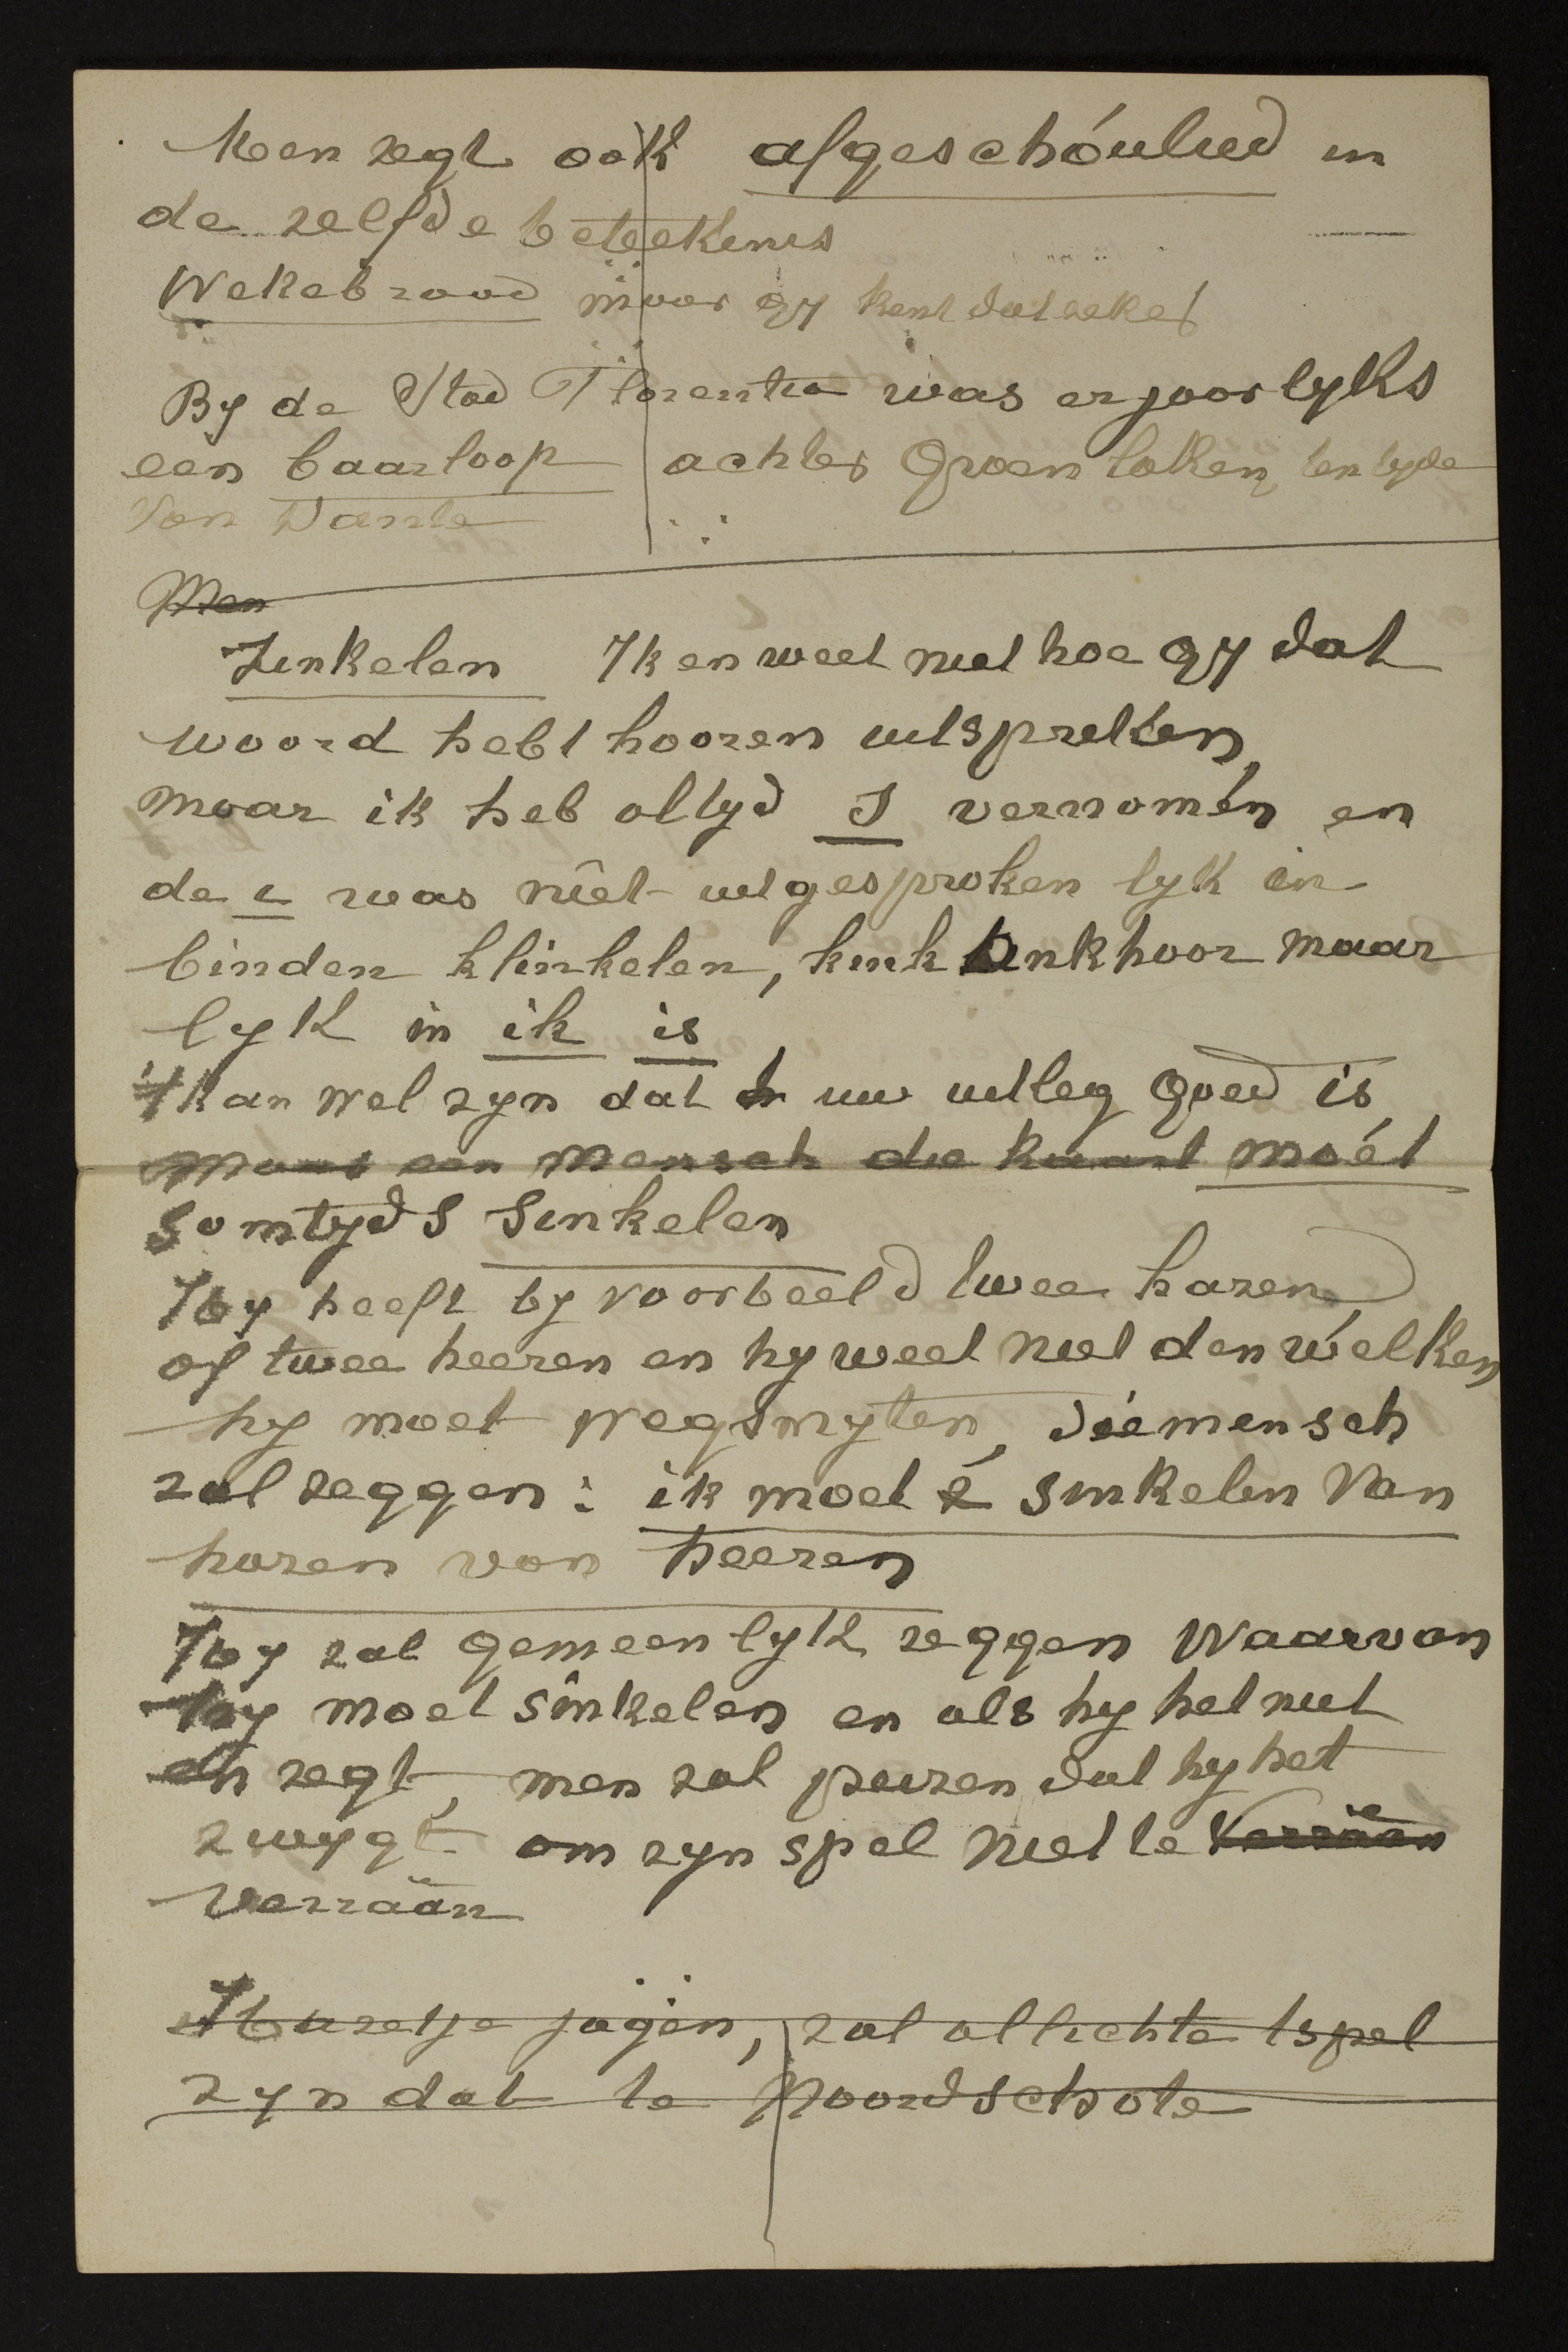 Men zegt ook afgeschóuwd in
de zelfde beteekenis
Wekebrood maar gy kent dat zeker
By de Stad Florentia was er jaarlyks
een baarloop achter Groen laken, ten tyde
Van Dante
Men
Zinkelen Ik en weet niet hoe gy dat
woord hebt hooren uitspreken,
maar ik heb altyd S vernomen en
de i was niet uitgesproken lyk in
binden klinkelen, kink hoor maar
lyk in ik is
't kan wel zyn dat uw uitleg goed is
Maar een Mensch die kaart moét
somtyds Sinkelen
Hy heeft by voorbeeld twee hazen
of twee heeren en hy weet niet den welken
hy moet wegsmyten, die mensch
zal zeggen: ik moet é sinkelen Van
hazen van heeren
Hy zal gemeenlyk zeggen Waarvan
hy moet sinkelen en als hy het niet
en zegt, men zal peizen dat hy het
zwygt om zyn spel niet te Verraän
Verraän
Hazetje jagen, zal allichte tspel
zyn dat te Noordschote